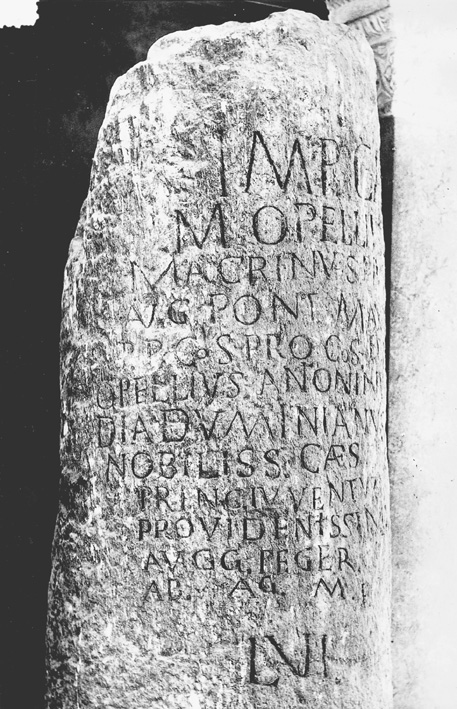 IMP CA
M OPELLIV
MACRINVS P
AVG PONT MA
P P COS PROCOS
OPELLIVS ANONIN
DIADVMINIANV
NOBILISS CAES
PRINC IVVENTV
PROVIDENTISSIM
AVGG FEGER
AB AG M P
LVI